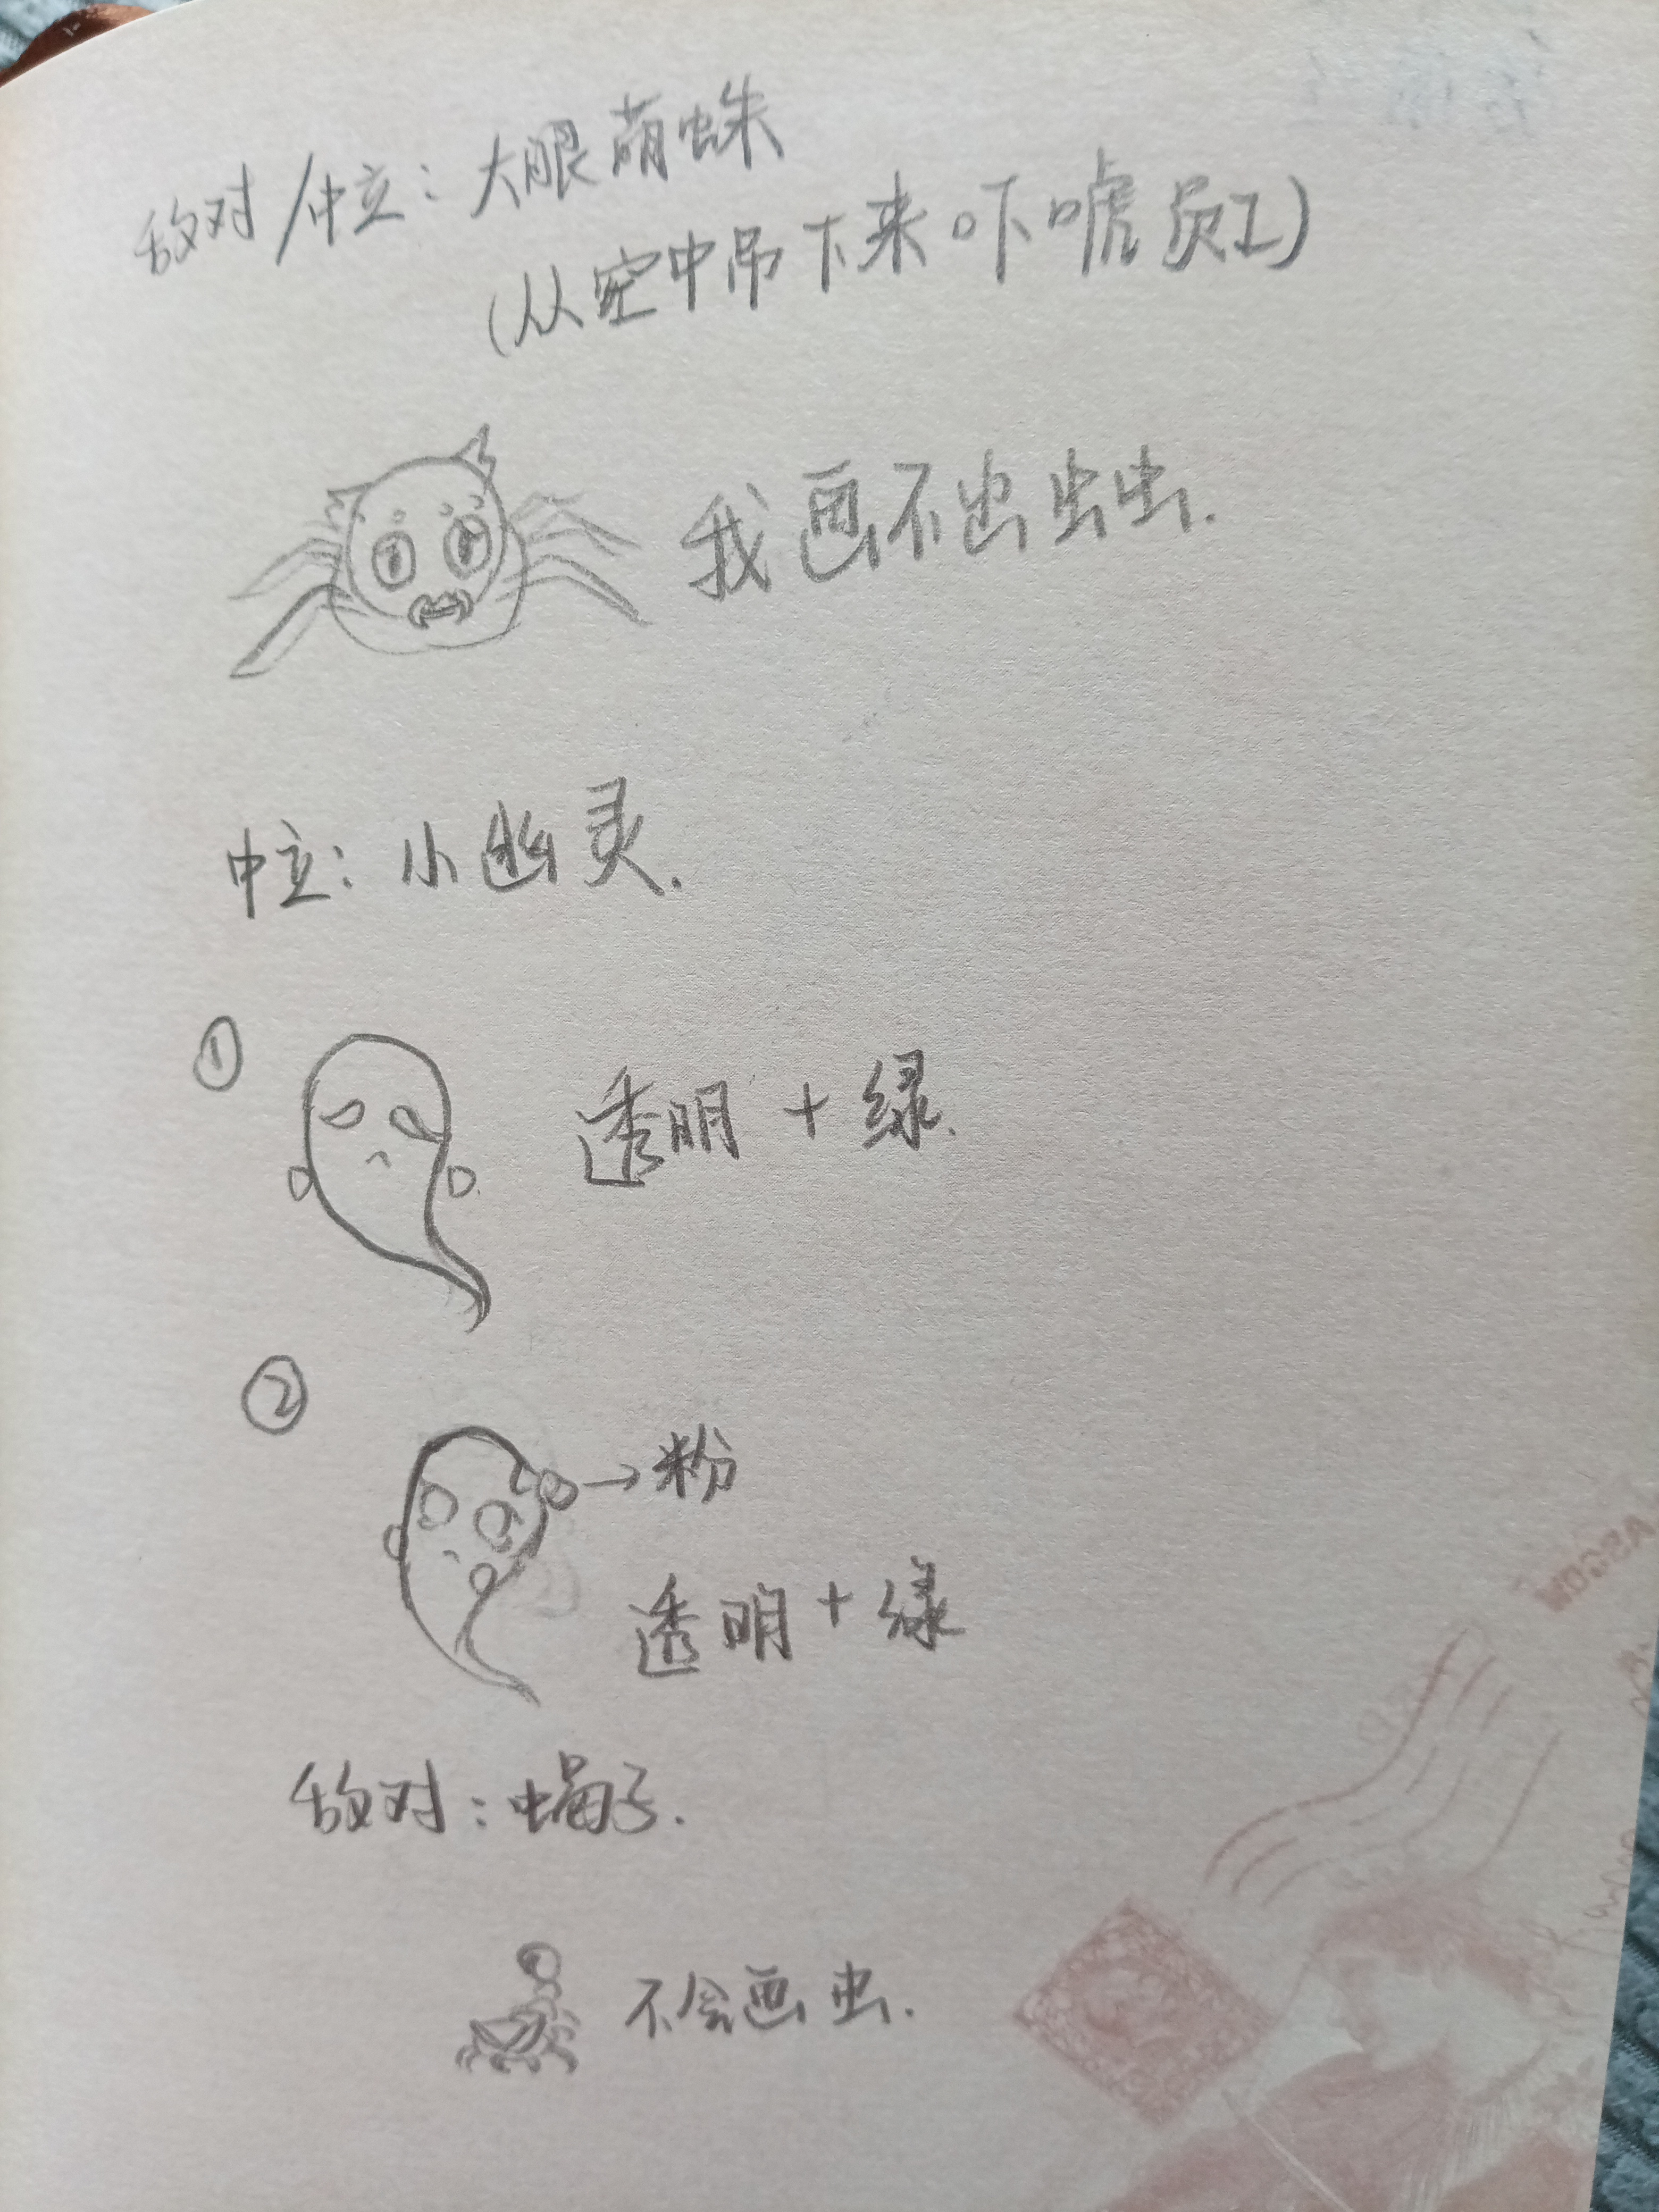 敌对/中立：大眼萌蛛
（从空中吊下来吓唬员工）
我画不出虫虫.
中立：小幽灵.
①
透明+绿.
②
→粉
透明+绿
敌对：蝎子.
不会画虫.